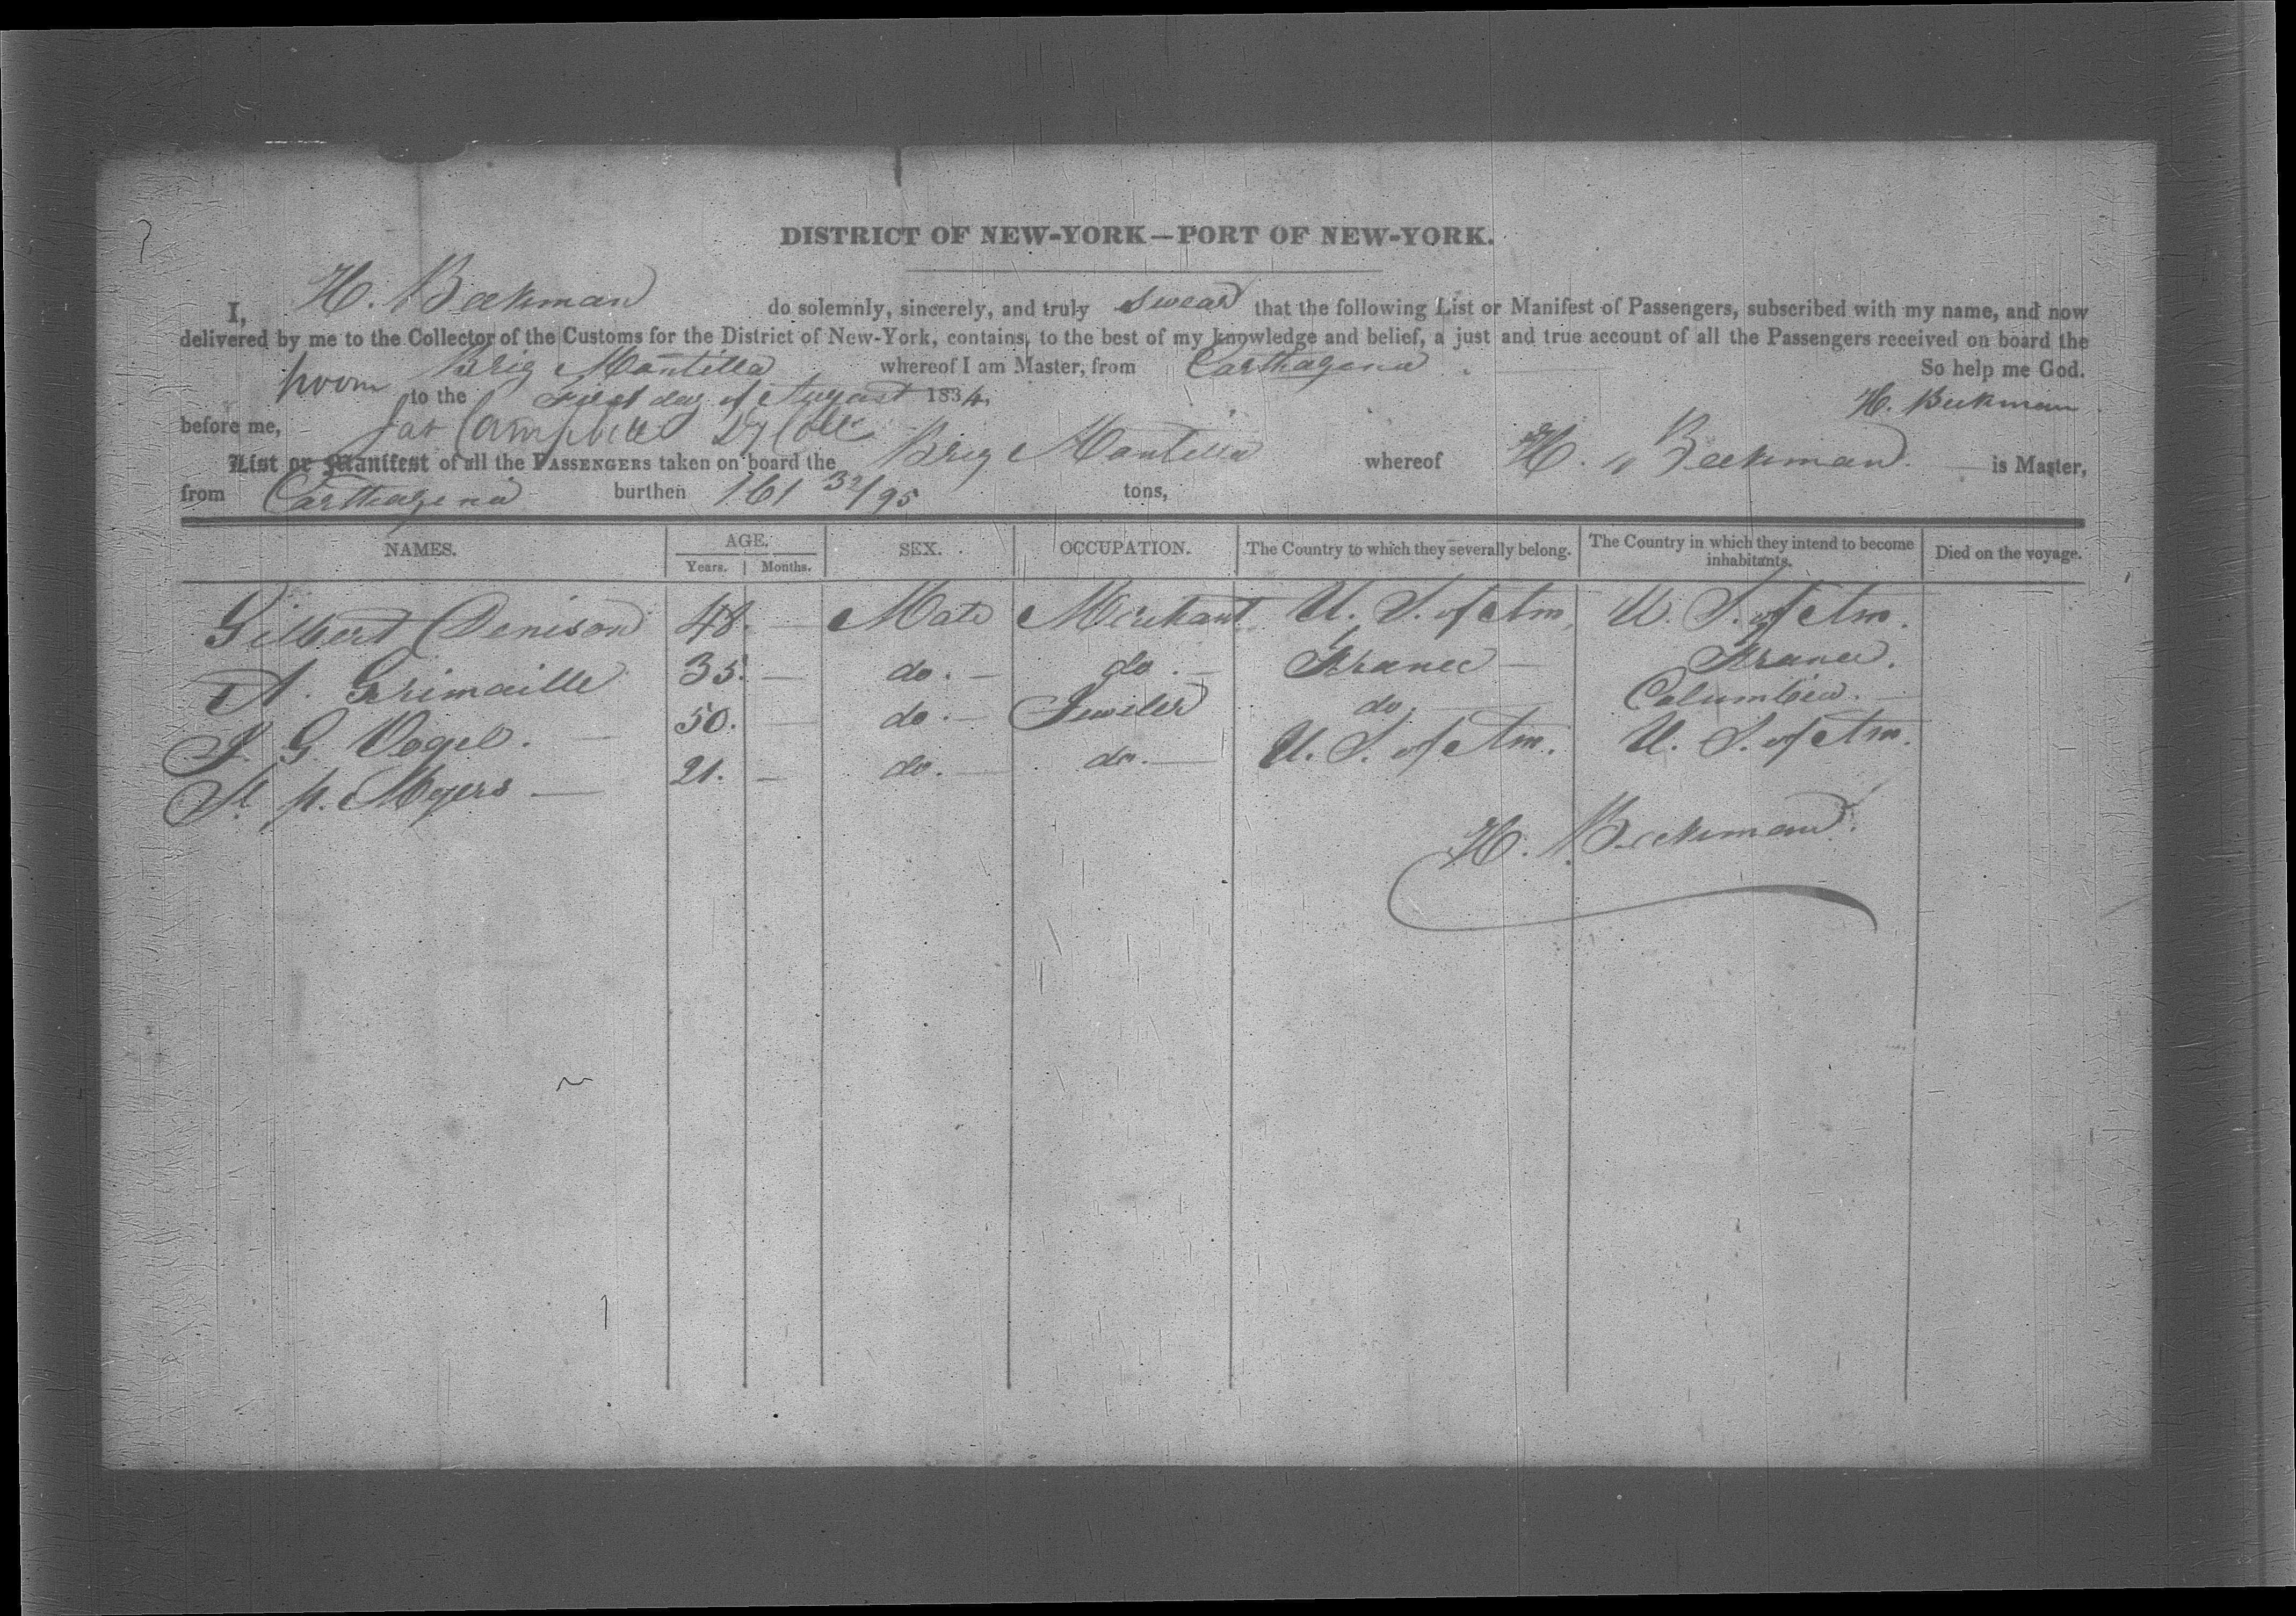 DISTRICT OF NEW-YORK—PORT OF NEW-YORK.
I, H. Beekman do solemnly, sincerely, and truly swear that the following List or Manifest of Passengers, subscribed with my name, and now
delivered by me to the Collector of the Customs for the District of New-York, contains, to the best of my knowledge and belief, a just and true account of all the Passengers received on board the
Brig Mantilla whereof I am Master, from Carthagena. So help me God.
Sworn to the First day of August 1834. H. Beekman
before me, Jas Campbell Dy Coll
List or Manifest of all the PASSENGERS taken on board the Brig Mantilla whereof H. Beekman. is Master,
from Carthagena burthen 161 32/95 tons,
NAMES. AGE. SEX. OCCUPATION. The Country to which they severally belong. The Country in which they intend to become inhabitants. Died on the voyage.
Years. Months.
Gilbert Denison 48. — Male Merchant U. S. of Am. U. S. of Am.
A. Grimaille 35. — do. — do. — France — France.
J. G. Vogel. — 50. — do. — Jeweler do. — Columbia. —
Myers — 21. — do. — do. — U. S. of Am. U. S. of Am.
H. Beekman.